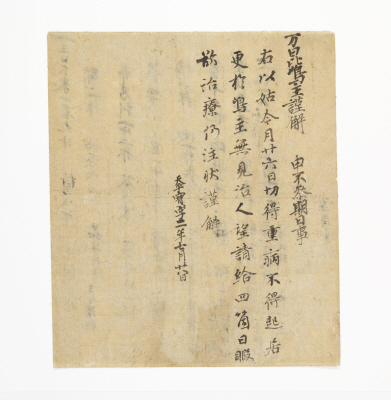 万昆嶋主謹解 申不参期日事
右以姑今月廿六日切得重病不得起居
更於嶋主無見治人望請給四箇日暇
欲治療仍注状謹解
寳字二年七月廿日